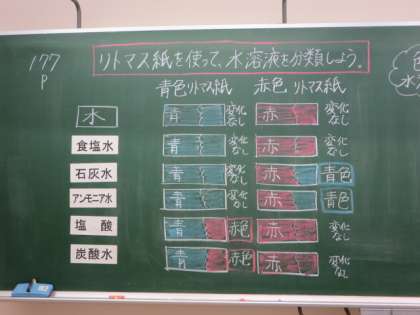 177
P
リトマス紙を使って、水溶液を分類しよう。
青色リトマス紙 赤色リトマス紙
水 青 変化なし 赤 変化なし
食塩水 青 変化なし 赤 変化なし
石灰水 青 変化なし 赤 青色
アンモニア水 青 変化なし 赤 青色
塩酸 青 赤色 赤 変化なし
炭酸水 青 赤色 赤 変化なし